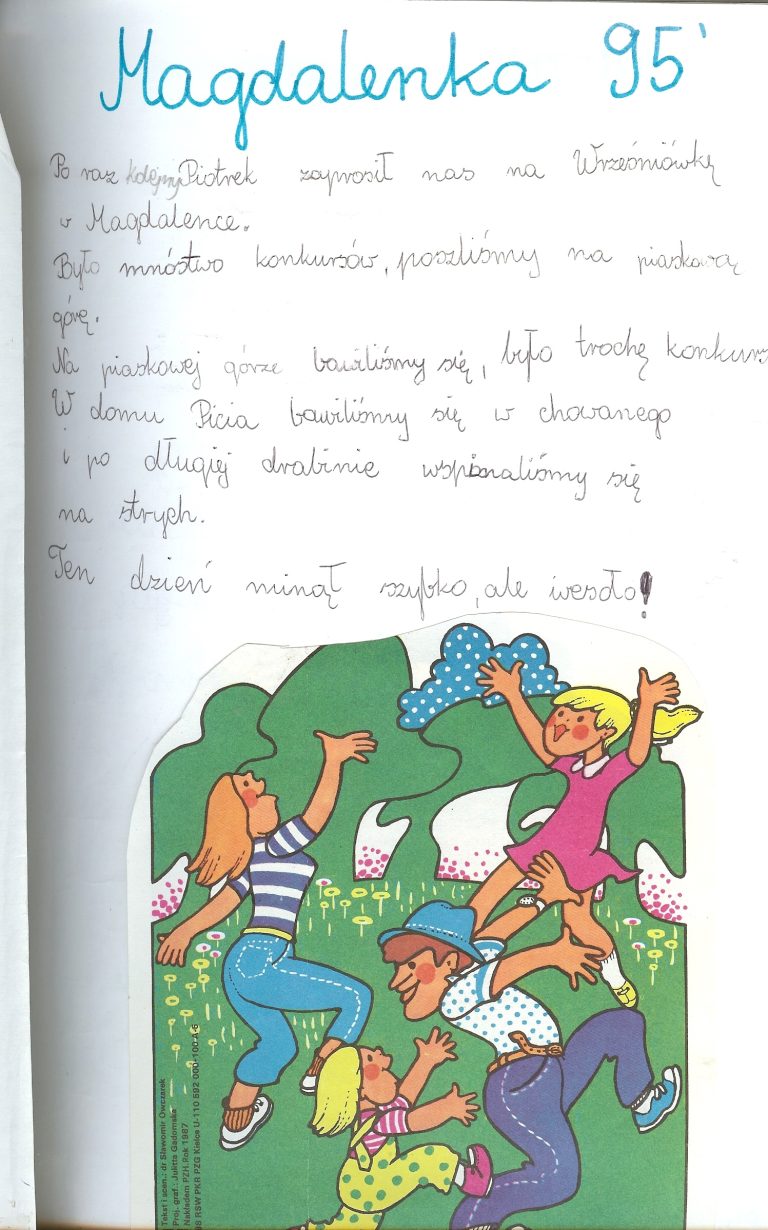 Magdalenka 95'
Po raz kolejny Piotrek zaprosił nas na Wrześniówkę
w Magdalence.
Było mnóstwo konkursów, poszliśmy na piaskową
górę.
Na piaskowej górze bawiliśmy się, było trochę konkurs
W domu Picia bawiliśmy się w chowanego
i po długiej drabinie wspinaliśmy się
na strych.
Ten dzień minął szybko, ale wesoło!
Tekst i scen.: dr Sławomir Owczarek
Proj. graf.: Julitta Gadomska
Nakładem PZH. Rok 1987
88 RSW PKR PZG Kielce U-110 592 000-100-4-5